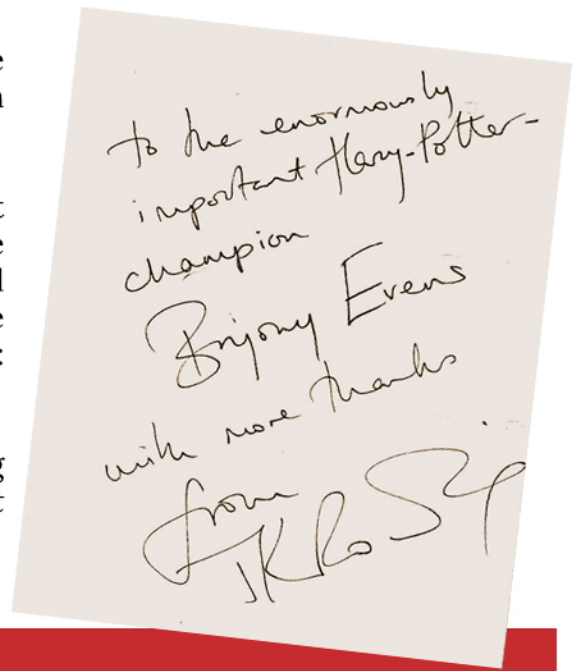 to the enormously
important Harry-Potter-
champion
Bryony Evens
with more thanks
from
JK Rowling